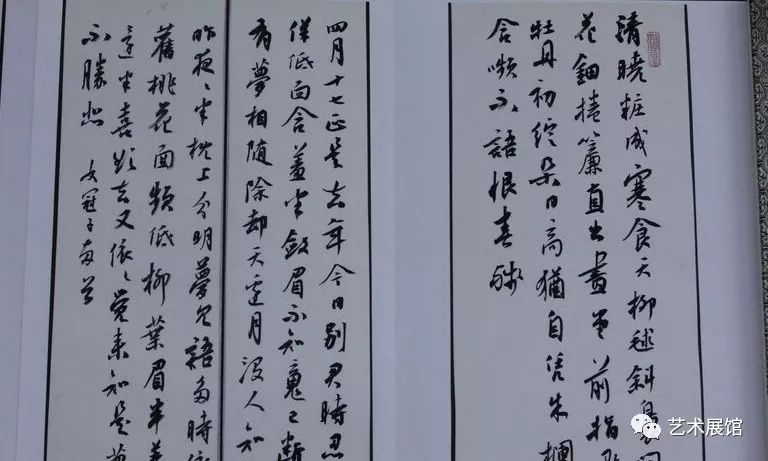 清曉粧成寒食天柳毬斜裊間
花鈿捲簾直出畫堂前指點
牡丹初綻朵日高猶自凭朱欄
含嚬不語恨春殘
四月十七正是去年今日別君時忍
佯低面含羞半斂眉不知魂已斷
有夢相隨除却天邊月沒人知
昨夜〻半枕上分明夢見語多時依
舊桃花面頻低柳葉眉半羞
還半喜欲去又依〻覺來知是夢
不勝悲 女冠子兩首
艺术展馆